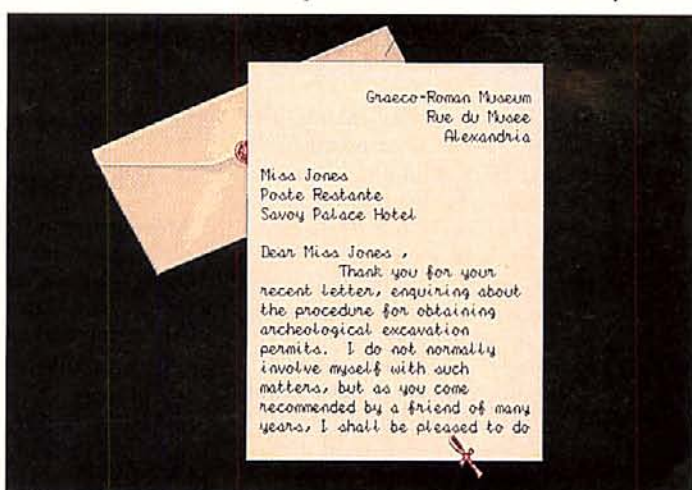 Graeco-Roman Museum
Rue du Musee
Alexandria
Miss Jones
Poste Restante
Savoy Palace Hotel
Dear Miss Jones ,
Thank you for your
recent letter, enquiring about
the procedure for obtaining
archeological excavation
permits. I do not normally
involve myself with such
matters, but as you come
recommended by a friend of many
years, I shall be pleased to do